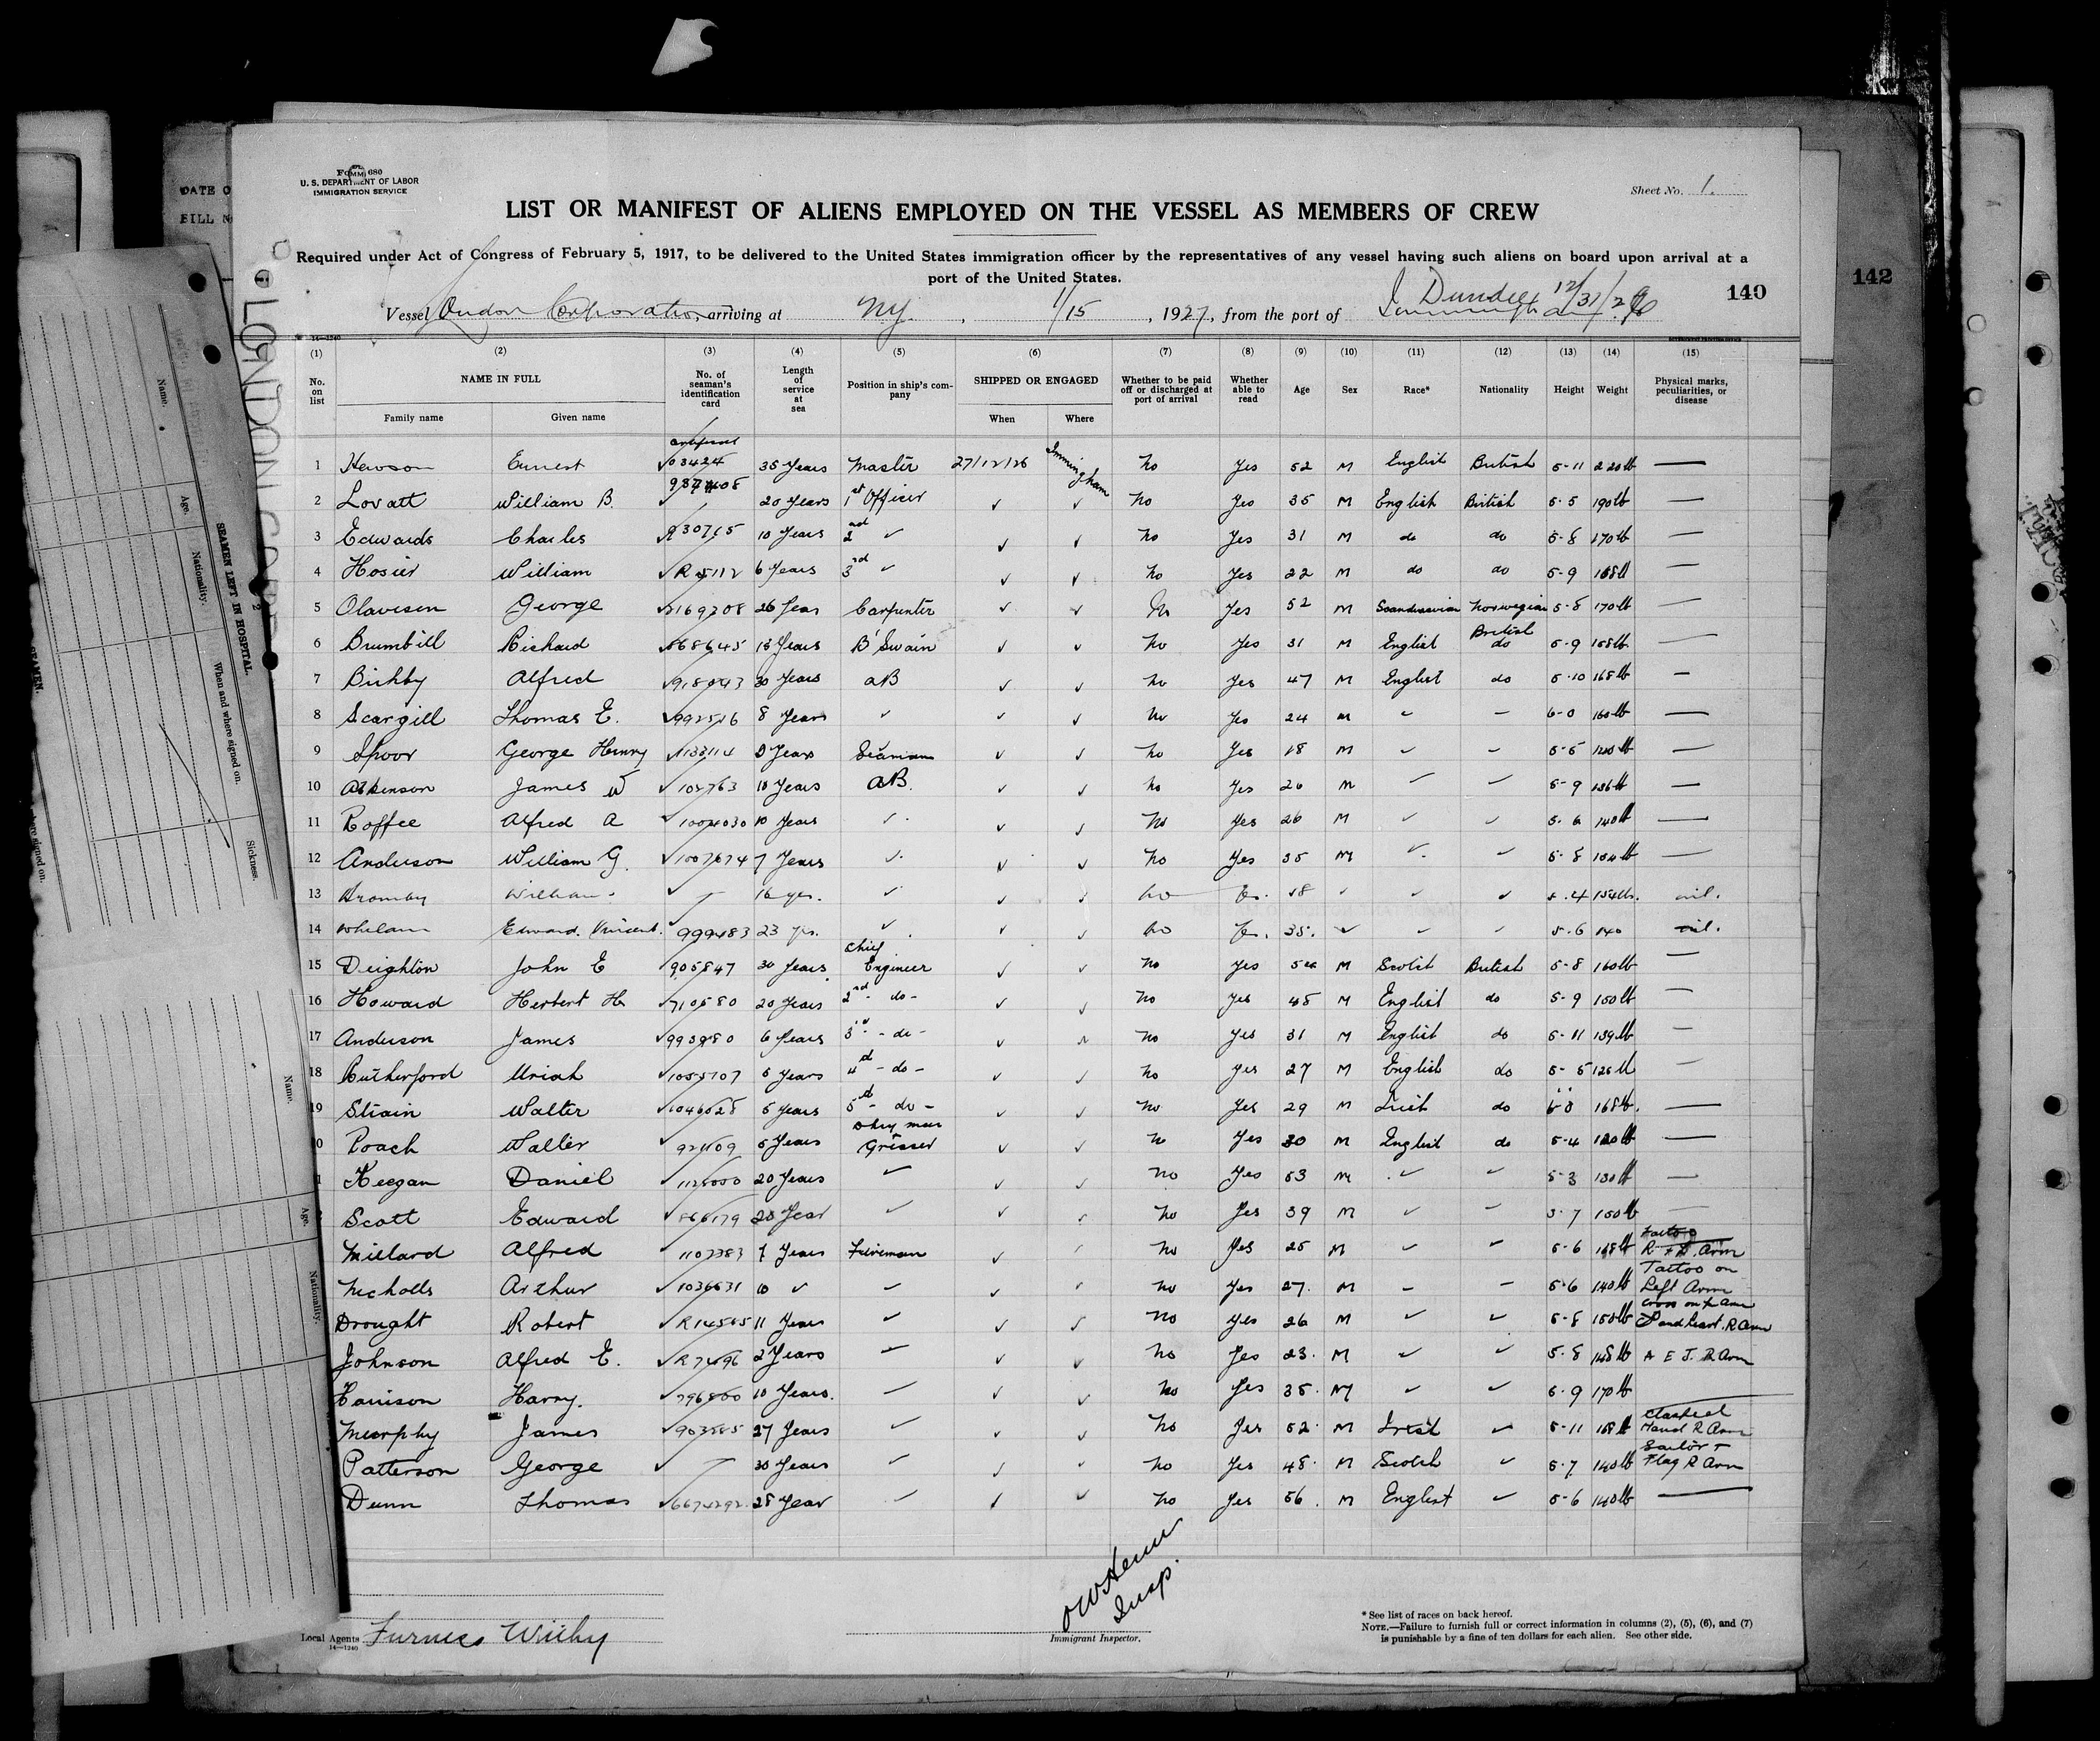 FORM 680
U. S. DEPARTMENT OF LABOR
IMMIGRATION SERVICE
Sheet No. 1.
LIST OR MANIFEST OF ALIENS EMPLOYED ON THE VESSEL AS MEMBERS OF CREW
Required under Act of Congress of February 5, 1917, to be delivered to the United States immigration officer by the representatives of any vessel having such aliens on board upon arrival at a
port of the United States.
140
142
Vessel London Corporation, arriving at NY., 1/15, 1927, from the port of Dundee 12/31/26
14—1240
(1) (2) (3) (4) (5) (6) (7) (8) (9) (10) (11) (12) (13) (14) (15)
No. on list NAME IN FULL No. of seaman's identification card Length of service at sea Position in ship's company SHIPPED OR ENGAGED Whether to be paid off or discharged at port of arrival Whether able to read Age Sex Race* Nationality Height Weight Physical marks, peculiarities, or disease
Family name Given name When Where
1 Hewson Ernest 03424 35 Years Master 27/12/26 Immingham No Yes 52 M English British 5-11 220 lb —
2 Lovatt William B. 20 Years 1st Officer ✓ ✓ No Yes 35 M English British 5-5 190 lb —
3 Edwards Charles 10 Years 2nd ✓ ✓ ✓ No Yes 31 M do do 5-8 170 lb —
4 Hosier William 6 Years 3rd ✓ ✓ ✓ No Yes 22 M do do 5-9 168 lb —
5 Olavesen George 26 Years Carpenter ✓ ✓ No Yes 52 M Scandinavian Norwegian 5-8 170 lb —
6 Brumbill Richard 868645 15 Years B'Swain ✓ ✓ No Yes 31 M English British do 5-9 158 lb —
7 Birkby Alfred 30 Years AB ✓ ✓ No Yes 47 M English do 5-10 168 lb —
8 Scargill Thomas E. 992516 8 Years ✓ ✓ ✓ No Yes 24 M 6-0 160 lb —
9 Spoor George Henry 2 Years Seaman ✓ ✓ No Yes 18 M ✓ 5-5 —
10 Atkinson James W 10 Years AB. ✓ ✓ No Yes 26 M 5-9 136 lb —
11 Roffee Alfred A 1004030 10 Years ✓ ✓ ✓ No Yes 26 M ✓ ✓ 5-6 140 lb —
12 Anderson William G. 1007674 7 Years ✓ ✓ ✓ No Yes 35 M ✓ ✓ 5-8 154 lb —
13 William 16 yrs. ✓ ✓ ✓ No ✓ ✓ ✓ 154 lbs. nil.
14 Whelan Edward Vincent. 999483 23 yrs. ✓ ✓ ✓ No 35. ✓ ✓ ✓ 5.6 140 nil.
15 Deighton John E 905847 30 Years Chief Engineer ✓ ✓ No Yes 54 M Scotch British 5-8 160 lb —
16 Howard Herbert H. 710580 20 Years 2nd - do - ✓ ✓ No Yes 45 M English do 5-9 150 lb —
17 Anderson James 6 Years 3rd - do - ✓ No Yes 31 M English do 5-11 139 lb —
18 Rutherford Uriah 5 Years 4 - do - ✓ ✓ No Yes 27 M English do 5-5 —
19 Strain Walter 5 Years 5 - do - ✓ ✓ No Yes 29 M Irish do 168 lb. —
0 Roach Walter 5 Years Dkey man Greaser ✓ ✓ No Yes 30 M English do 5-4 —
1 Keegan Daniel 20 Years ✓ ✓ ✓ No Yes 53 M ✓ ✓ 5-3 130 lb —
Scott Edward 866179 ✓ ✓ No Yes 39 M ✓ 150 lb —
Millard Alfred 7 Years Fireman ✓ No Yes 25 M ✓ 5-6 Tattoo R + L Arm
Nicholls Arthur 1036631 10 ✓ ✓ No Yes 27. M 5-6 140 lb Tattoo on Left Arm
Drought Robert 11 Years ✓ ✓ ✓ No Yes 26 M ✓ ✓ 5-8 150 lb Cross on L Arm and heart. R Arm
Johnson Alfred E. R 2 Years ✓ ✓ ✓ No Yes 23. M ✓ ✓ 5.8 148 lb A E J. R Arm
Harrison Harry. 10 Years. ✓ ✓ No Yes 35. M ✓ ✓ 5.9 170 lb —
Murphy James 27 Years ✓ ✓ ✓ No Yes 52. M Irish ✓ 5-11 Clasped Hand R Arm
Patterson George 30 Years ✓ ✓ ✓ No Yes 48. M Scotch ✓ 5.7 140 lb Sailor + Flag R Arm
Dunn Thomas 28 Year ✓ ✓ No Yes 56. M English ✓ 5-6 140 lb —
Local Agents Furness Withy
14—1240
Insp.
Immigrant Inspector.
* See list of races on back hereof.
NOTE.—Failure to furnish full or correct information in columns (2), (5), (6), and (7)
is punishable by a fine of ten dollars for each alien. See other side.
SEAMEN LEFT IN HOSPITAL.
Name.
Age.
Nationality.
When and where signed on.
Sickness.
Name.
Age.
Nationality.